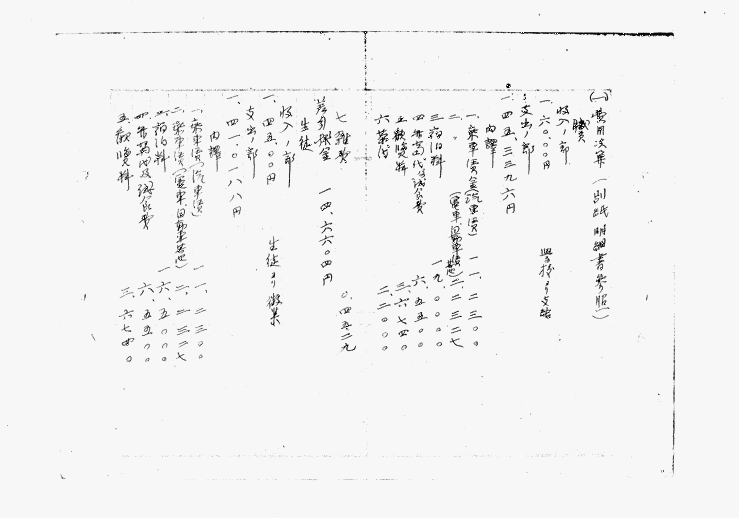 (一)費用決算(別紙明細書参照)
職員
収入ノ部
一、六〇.〇〇円 学校ヨリ支給
支出ノ部
一、四五.三三九六円
内譯
一、乗車賃金(汽車賃) 一一.二三〇〇
二、〃(電車自動車賃) 二.二三二七
三、宿泊料 一九.〇〇〇〇
四、弁当代及間食費 六.五五〇〇
五、観覧料 三.六七四〇
六、茶代 二.二〇〇〇
七、雑費 〇.四五二九
差引残金 一四.六六〇四円
生徒
収入ノ部
一、四五.〇〇円 生徒ヨリ徴集
支出ノ部
一、四一.〇一八八円
内譯
一、乗車賃(汽車賃) 一一.二三〇〇
二、乗車賃(電車、自動車) 二.二三二七
三、宿泊料 一六.五〇〇〇
四、弁当代及間食費 六.五五〇〇
五、観覧料 三.六七四〇